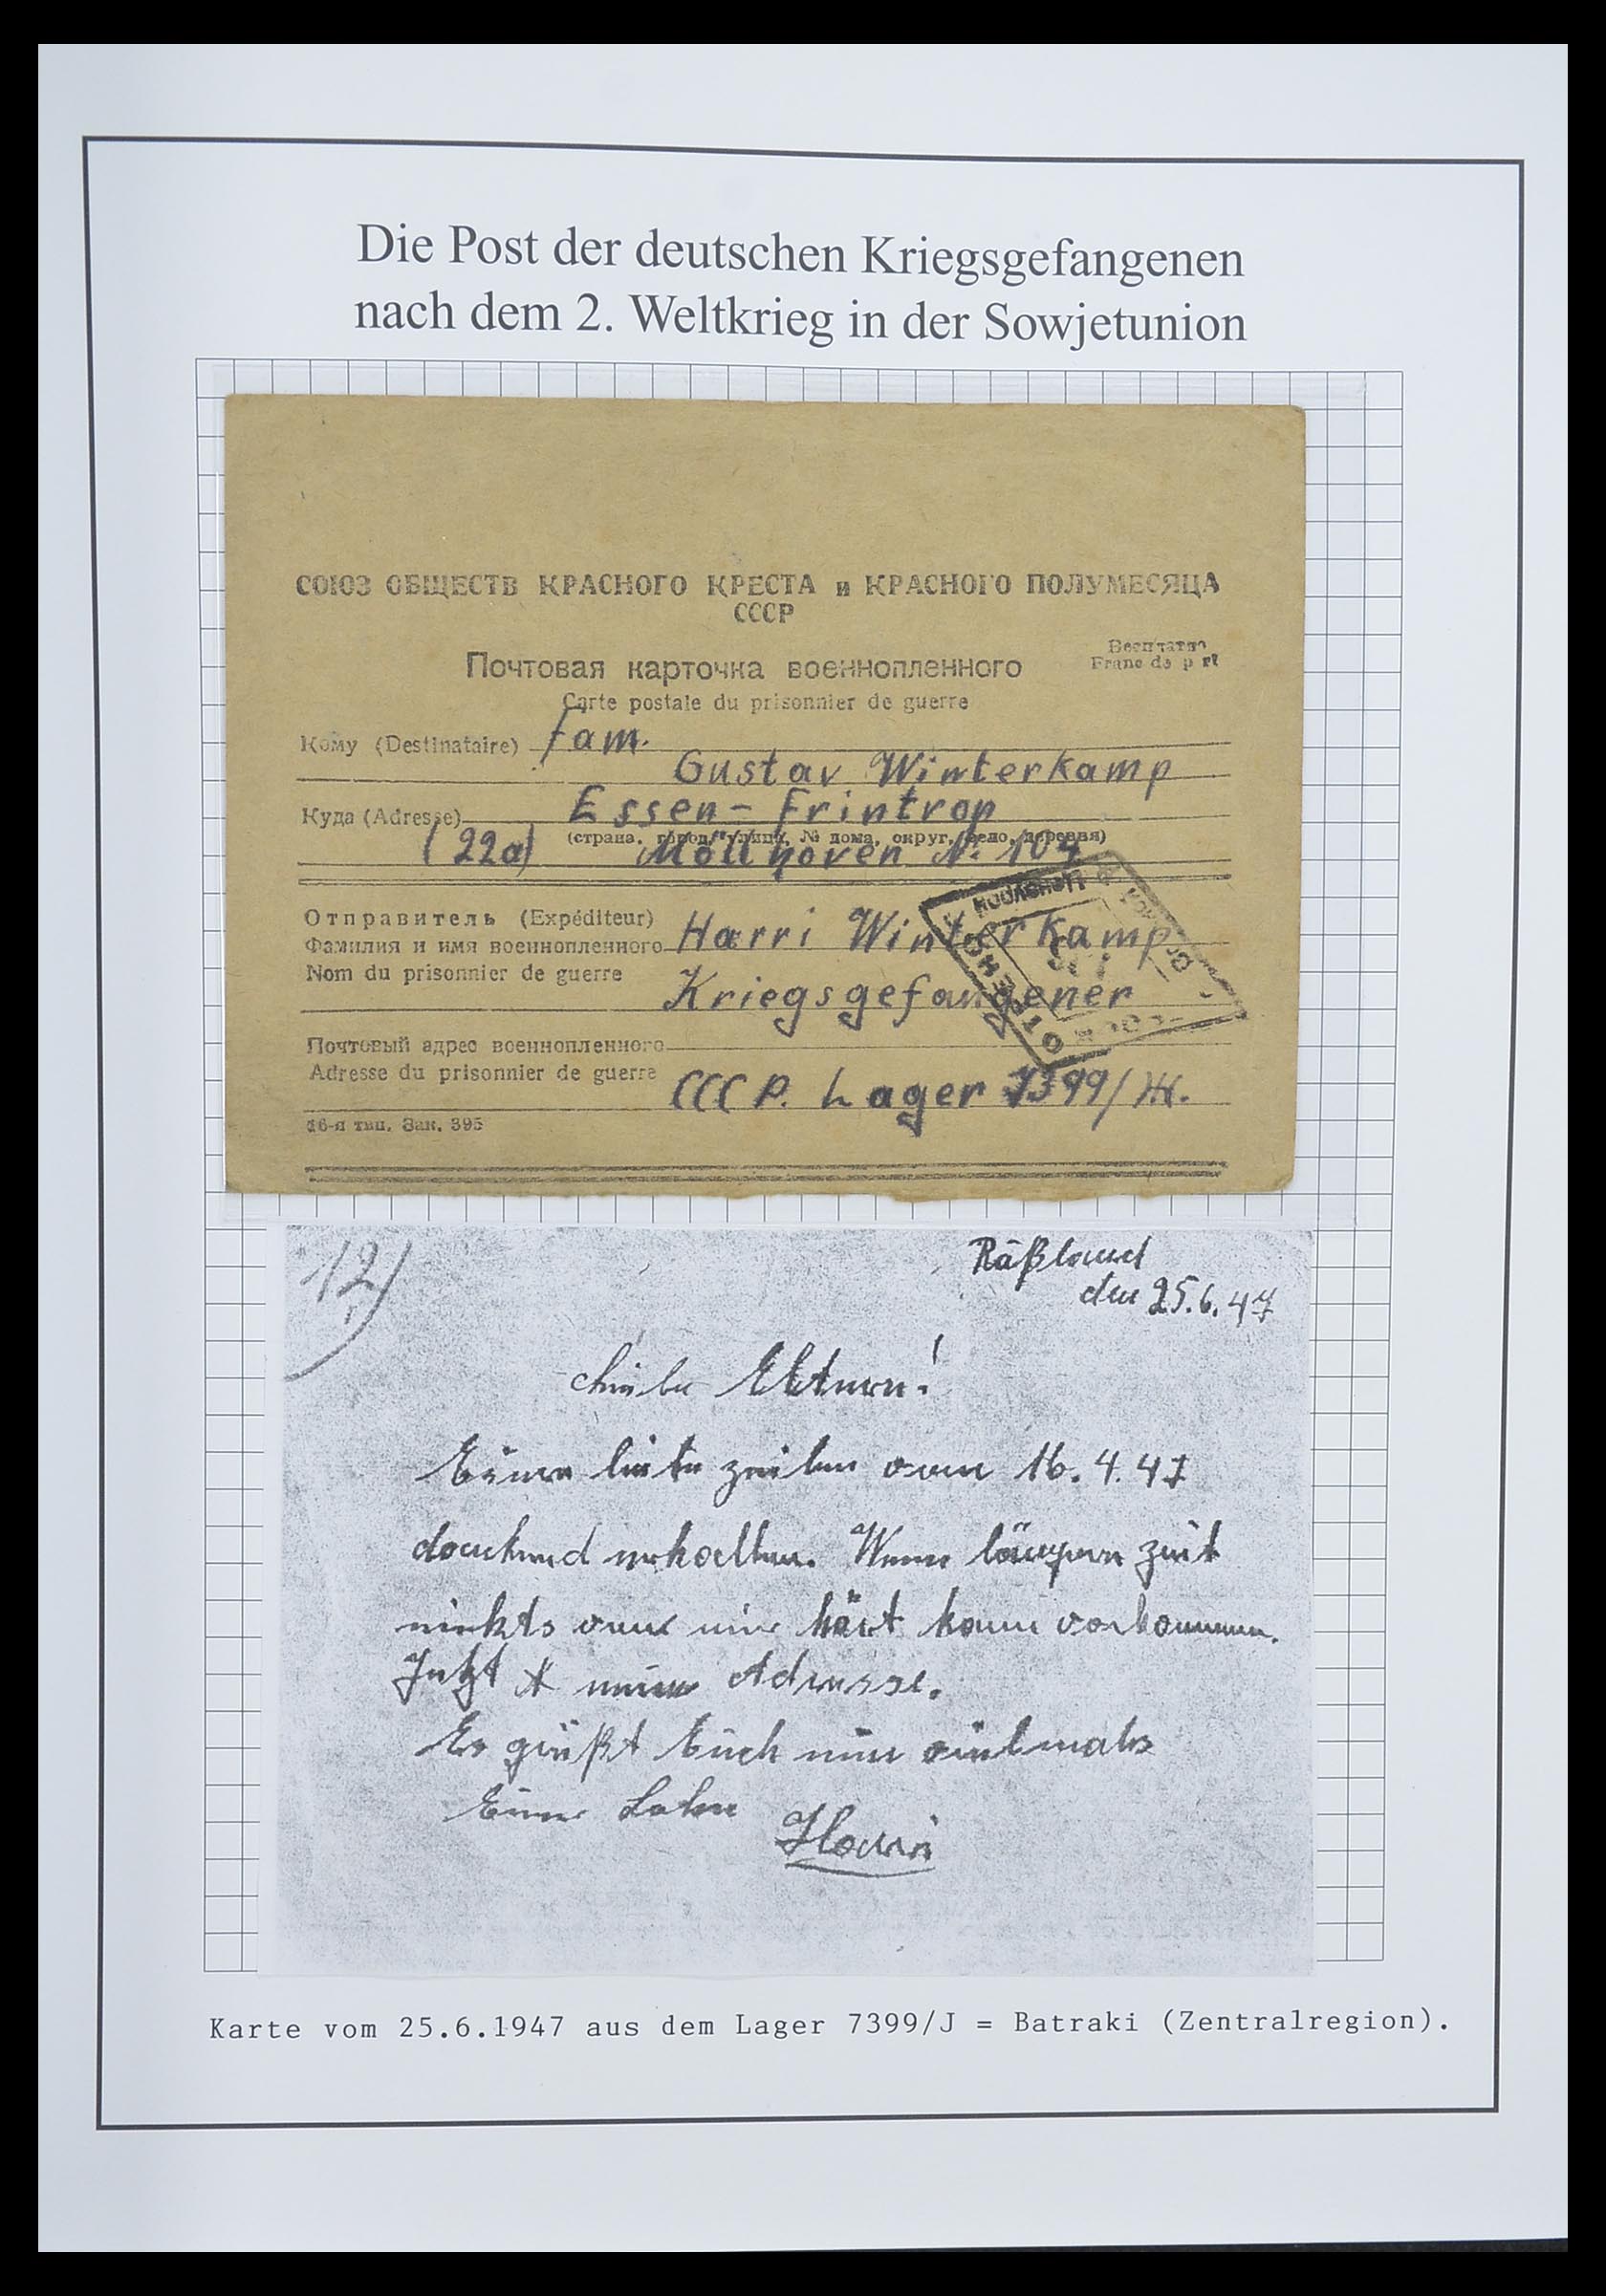 Die Post der deutschen Kriegsgefangenen
nach dem 2. Weltkrieg in der Sowjetunion
СОЮЗ ОБЩЕСТВ КРАСНОГО КРЕСТА и КРАСНОГО ПОЛУМЕСЯЦА
СССР
Бесплатно
Franc de port
Почтовая карточка военнопленного
Carte postale du prisonnier de guerre
Кому (Destinataire) Fam.
Gustav Winterkamp
Куда (Adresse) Essen-Frintrop
(страна, город, улица, № дома, округ, село, деревня)
(22a) Möllhoven Nr. 104
Отправитель (Expéditeur)
Фамилия и имя военнопленного Harri Winterkamp
Nom du prisonnier de guerre
Kriegsgefangener
Почтовый адрес военнопленного
Adresse du prisonnier de guerre CCCP. Lager 7399/Ж.
16-я тип. Зак. 395
12)
Rußland
den 25.6.47
Liebe Eltern!
Eure liebe Zeilen vom 16.4.47
dankend erhalten. Wenn längere Zeit
nichts von mir hört kann vorkommen.
Jetzt meine Adresse.
Es grüßt Euch nun vielmals
Euer Sohn
Harri
Karte vom 25.6.1947 aus dem Lager 7399/J = Batraki (Zentralregion).